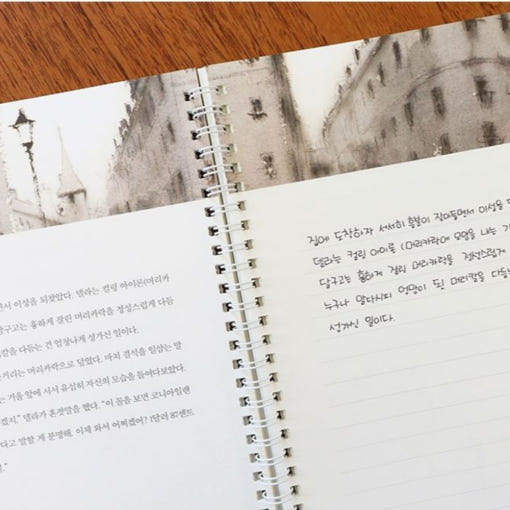 면서 이성을 되찾았다. 델라는 컬링 아이론(머리카
달구고는 흉하게 잘린 머리카락을 정성스럽게 다듬
리칼을 다듬는 건 엄청나게 성가신 일이다.
머리카락으로 덮였다. 마치 결석을 일삼는 말
는 거울 앞에 서서 유심히 자신의 모습을 들여다보았다.
겠지." 델라가 혼잣말을 했다. "이 꼴을 보면 코니아일랜
다고 말할 게 분명해. 이제 와서 어쩌겠어? 1달러 87센트
집에 도착하자 서서히 흥분이 잦아들면서 이성을
델라는 컬링 아이롱 (머리카락에 모양을 내는
달구고는 흉하게 잘린 머리카락을 정성스럽게
누구나 알다시피 엉망이 된 머리칼을
성가신 일이다.